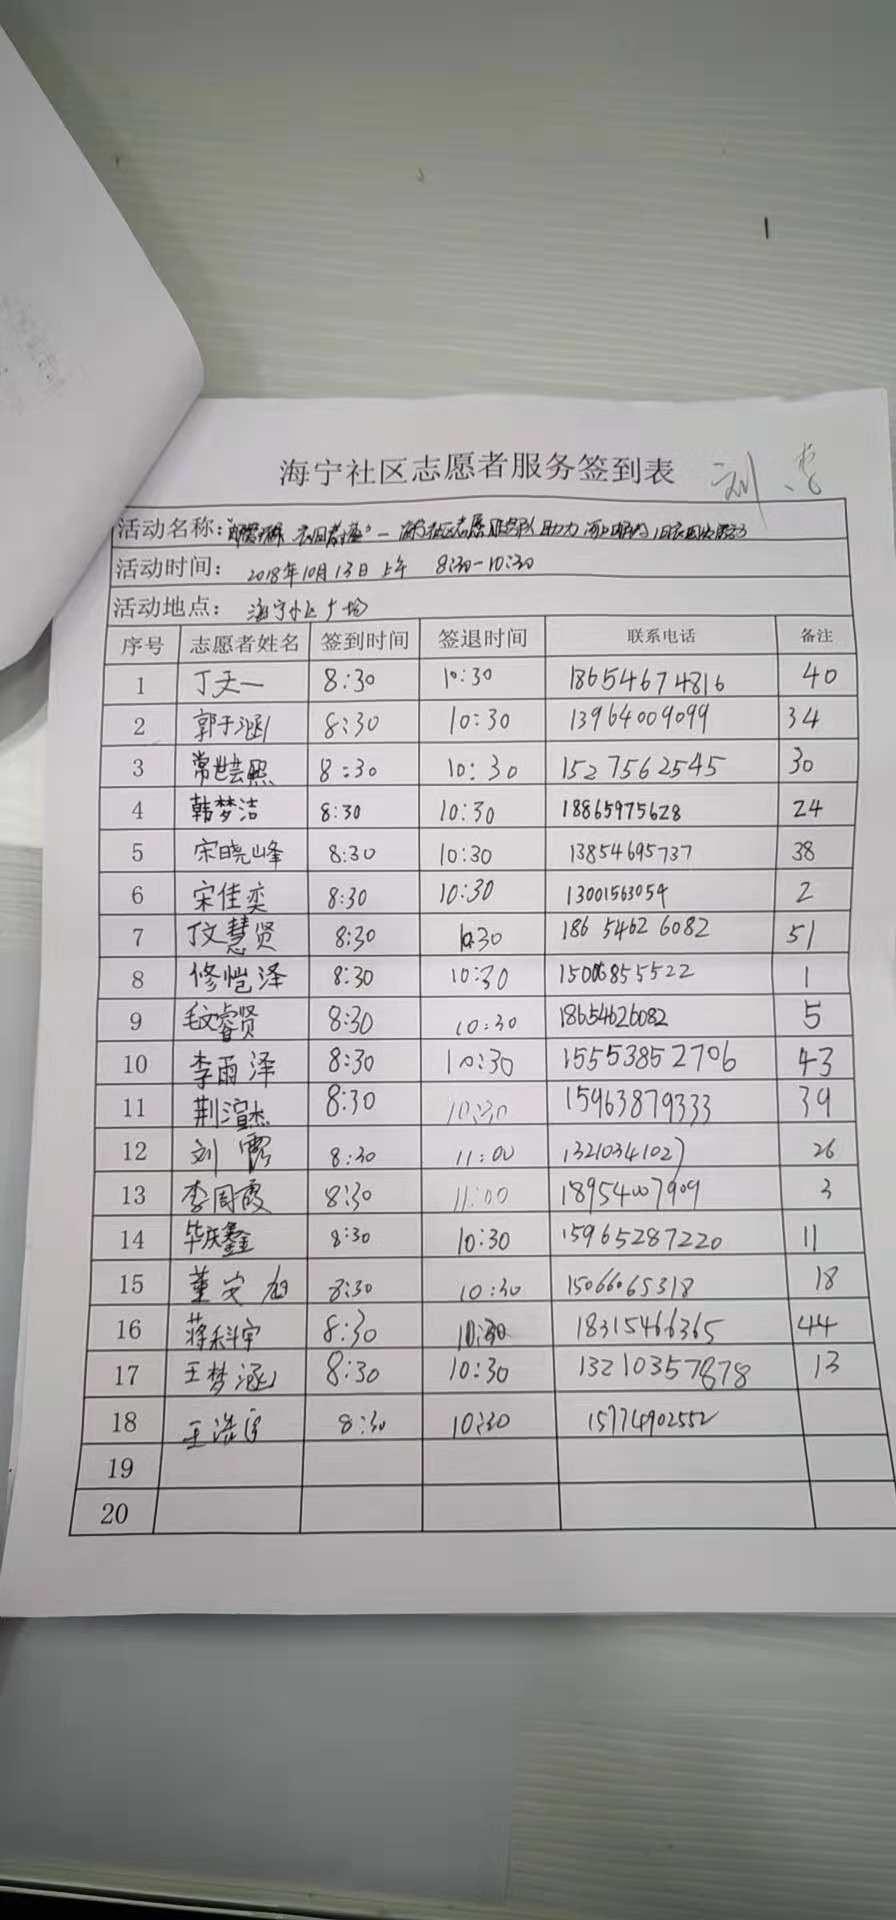 海宁社区志愿者服务签到表 刘
活动名称：
活动时间： 2018年10月13日上午 8:30-10:30
活动地点： 海宁小区广场
序号 志愿者姓名 签到时间 签退时间 联系电话 备注
1 丁天一 8:30 10:30 18654674816 40
2 郭于涵 8:30 10:30 13964009099 34
3 常世芸熙 8:30 10:30 1527562545 30
4 韩梦洁 8:30 10:30 18865975628 24
5 宋晓峰 8:30 10:30 13854695737 38
6 宋佳奕 8:30 10:30 13001563054 2
7 丁文慧贤 8:30 10:30 186 5462 6082 51
8 修恺泽 8:30 10:30 15006855522 1
9 毛文睿贤 8:30 10:30 18654626082 5
10 李雨泽 8:30 10:30 15553852706 43
11 荆渲杰 8:30 10:30 15963879333 39
12 刘霞 8:30 11:00 13210341027 26
13 李周霞 8:30 11:00 18954007909 3
14 毕庆鑫 8:30 10:30 15965287220 11
15 董安旭 8:30 10:30 15066065318 18
16 蒋科宇 8:30 10:30 18315466365 44
17 王梦涵 8:30 10:30 13210357878 13
18 王浩宇 8:30 10:30 15774902552
19
20